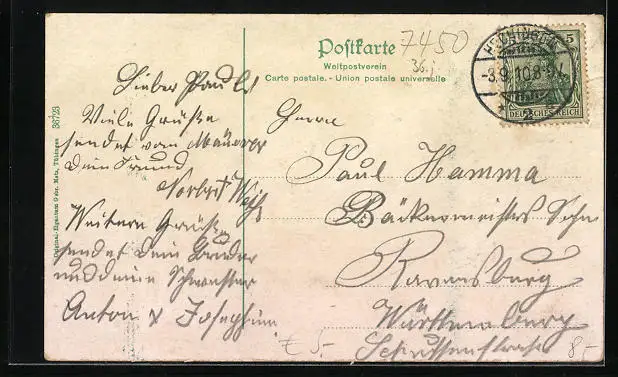 Postkarte
Weltpostverein
Carte postale. - Union postale universelle
7450
36.-
HECHINGEN
-3.9.10.8-9V
* 2 *
5
DEUTSCHES REICH
Original-Eigentum Gebr. Metz, Tübingen 36723
Lieber Paul!
Viele Grüße
sendet vom Manöver
Dein Freund
Norbert
Weitere Grüße
sendet Dein Bruder
und deine Schwester
Anton & Josephine
Herrn
Paul Hamma
Bäckermeisters Sohn
Ravensburg
Württemberg
Schussenstrasse
€ 5,-
8,-